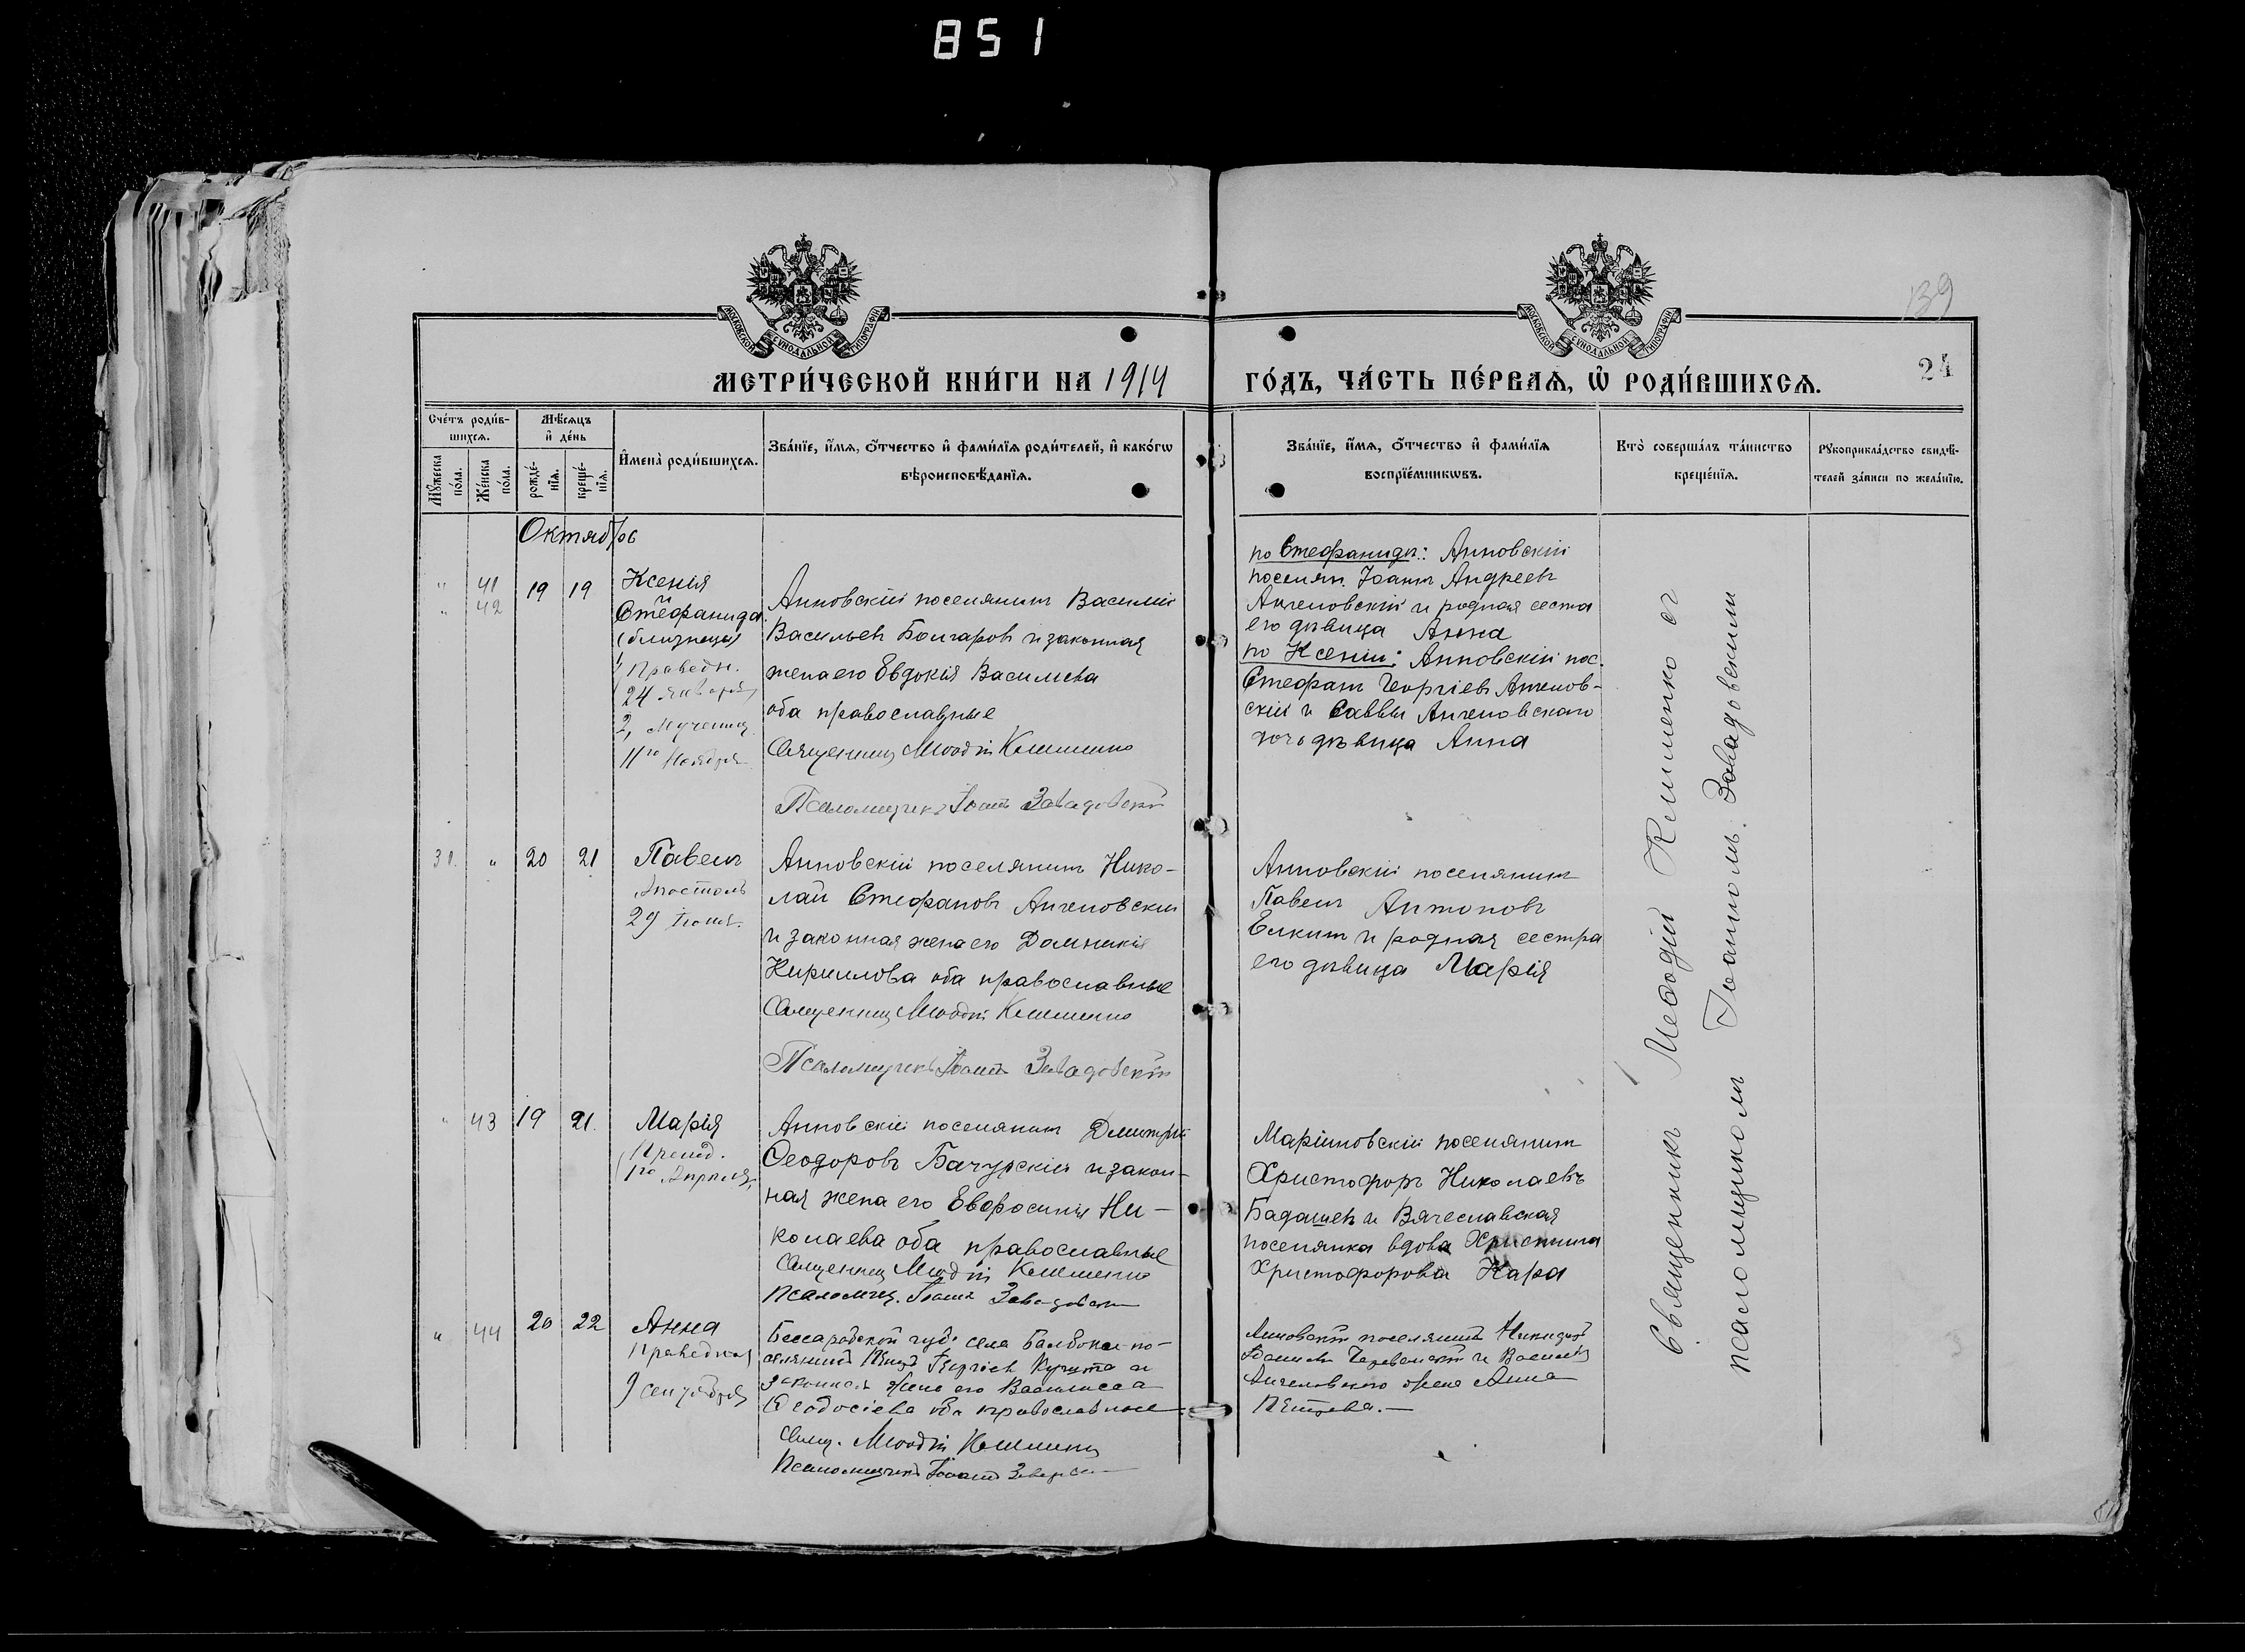 851
139
МОСКОВСКОЙ СѴНОДАЛЬНОЙ ТИПОГРАФІИ
МОСКОВСКОЙ СѴНОДАЛЬНОЙ ТИПОГРАФІИ
МЕТРИ́ЧЕСКОЙ КНИ́ГИ НА 1914
ГО́ДЪ, ЧА́СТЬ ПЕ́РВАѦ, Ѡ҆ РОДИ́ВШИХСѦ.
24
Сче́тъ роди́в-
шихсѧ.
Мꙋ́жеска по́ла.
Же́нска по́ла.
Мѣ́сѧцъ
и҆ де́нь
рожде́-
нїѧ.
креще́-
нїѧ.
И҆мена̀ роди́вшихсѧ.
Зва́нїе, и҆́мѧ, ѻ҆́тчество и҆ фами́лїѧ роди́телей, и҆ како́гѡ
вѣроисповѣ́данїѧ.
Зва́нїе, и҆́мѧ, ѻ҆́тчество и҆ фами́лїѧ
воспрїе́мникѡвъ.
Кто̀ соверша́лъ та́инство
креще́нїѧ.
Рꙋкоприкла́дство свидѣ́-
телей за́писи по жела́нїю.
Октябрь
" 41
" 42
19 19
Ксенія
и
Стефанида
(близнецы)
1, Праведн.
24 января
2, Мучениц.
11го Ноября
Анновскій поселянинъ Василій
Васильевъ Болгаровъ и законная
жена его Евдокія Василиева
оба православные
Священникъ Меѳодій Клименко
Псаломщикъ Іоаннъ Завадовскій
по Стефанидѣ: Анновскій
поселян. Іоаннъ Андреевъ
Ангеловскій и родная сестра
его дѣвица Анна
по Ксеніи: Анновскій пос.
Стефанъ Георгіевъ Ангелов-
скій и Саввы Ангеловскаго
дочь дѣвица Анна
" 20 21
Павелъ
Апостолъ
29 Іюня.
Анновскій поселянинъ Нико-
лай Стефановъ Ангеловскій
и законная жена его Домникія
Кириллова оба православные
Священникъ Меѳодій Клименко
Псаломщикъ Іоаннъ Завадовскій
Анновскій поселянинъ
Павелъ Антоновъ
Елкинъ и родная сестра
его дѣвица Марія
" 43 19 21.
Марія
Препод.
1го Апрѣля.
Анновскій поселянинъ Димитрій
Ѳеодоровъ Бачурскій и закон-
ная жена его Евфросинія Ни-
колаева оба православные
Священникъ Меѳодій Клименко
Псаломщ. Іоаннъ Завадовскій
Маріиновскій поселянинъ
Христофоръ Николаевъ
Бадашевъ и Вячеславская
поселянка вдова Христина
Христофорова Кара
" 44 20 22
Анна
Праведная
9 сентября
Бессарабской губ. села по-
селянинъ Георгіевъ и
законная жена его Василисса
Ѳеодосіева оба православные
Свящ. Меѳодій Клименко
Псаломщикъ Іоаннъ
Анновскій поселянинъ
и Василія
Ангеловскаго жена Анна
Петрова.
Священникъ Меѳодій Клименко съ
псаломщикомъ Іоанномъ Завадовскимъ